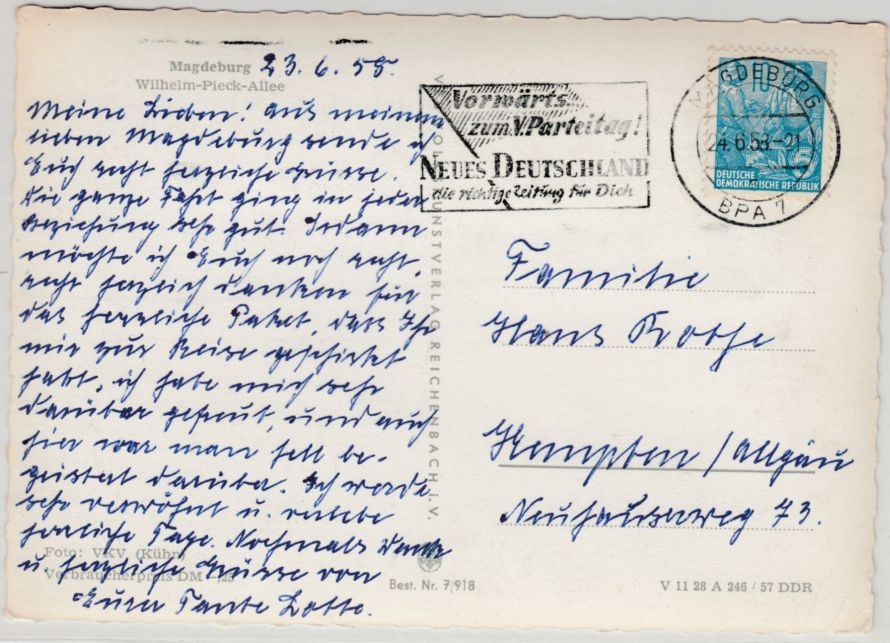 Magdeburg 23.6.58.
Wilhelm-Pieck-Allee
Meine Lieben! Aus meinem
lieben Magdeburg sende ich
Euch recht herzliche Grüsse.
Die ganze Fahrt ging in jeder
Beziehung sehr gut. Sodann
möchte ich Euch noch recht,
recht herzlich danken für
das herrliche Paket, dass Ihr
mir zur Reise geschickt
habt, ich habe mich sehr
darüber gefreut, und auch
hier war man hell be-
geistert darüber. Ich werde
sehr verwöhnt u. verlebe
herrliche Tage. Nochmals Dank
u. herzliche Grüsse von
Eurer Tante Lotte.
Foto: VKV (Kühn)
Verbraucherpreis DM -,25
VOLKSKUNSTVERLAG REICHENBACH I. V.
Best. Nr. 7/918
Vorwärts
zum V. Parteitag!
NEUES DEUTSCHLAND
die richtige Zeitung für Dich
MAGDEBURG
24.6.58-21
BPA 7
10
DEUTSCHE
DEMOKRATISCHE REPUBLIK
Familie
Hans Kothe
Kempten / Allgäu
Neuhauserweg 73.
V 11 28 A 246 / 57 DDR